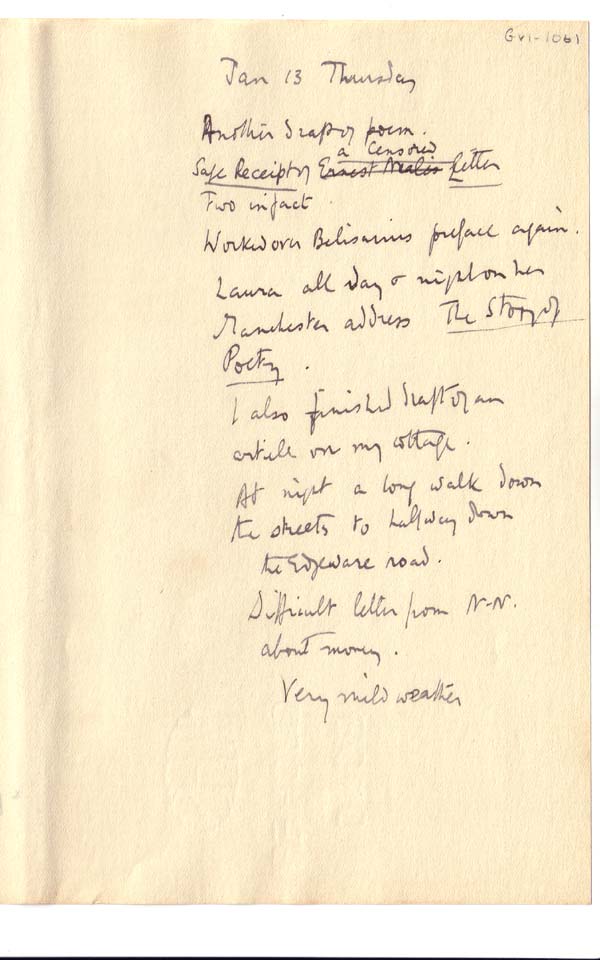 GVI-1061
Jan 13 Thursday
Another draft of poem.
a Censored
Safe Receipt of Ernest Letter
Two in fact.
Worked over Belisarius preface again.
Laura all day & night on her
Manchester address The Story of
Poetry.
I also finished draft of an
article on my cottage.
At night a long walk down
the streets to halfway down
the Edgeware road.
Difficult letter from N-N.
about money.
Very mild weather